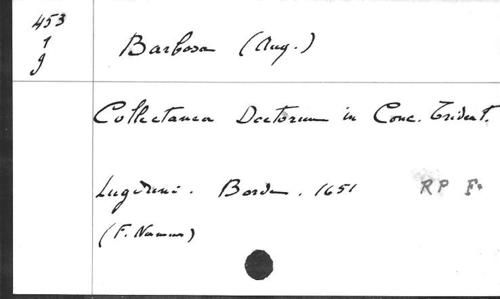 453
1
g
Barbosa (Aug.)
Collectanea Doctorum in Conc. Trident.
Lugduni. Borde. 1651 RP F.
(F. Namur)